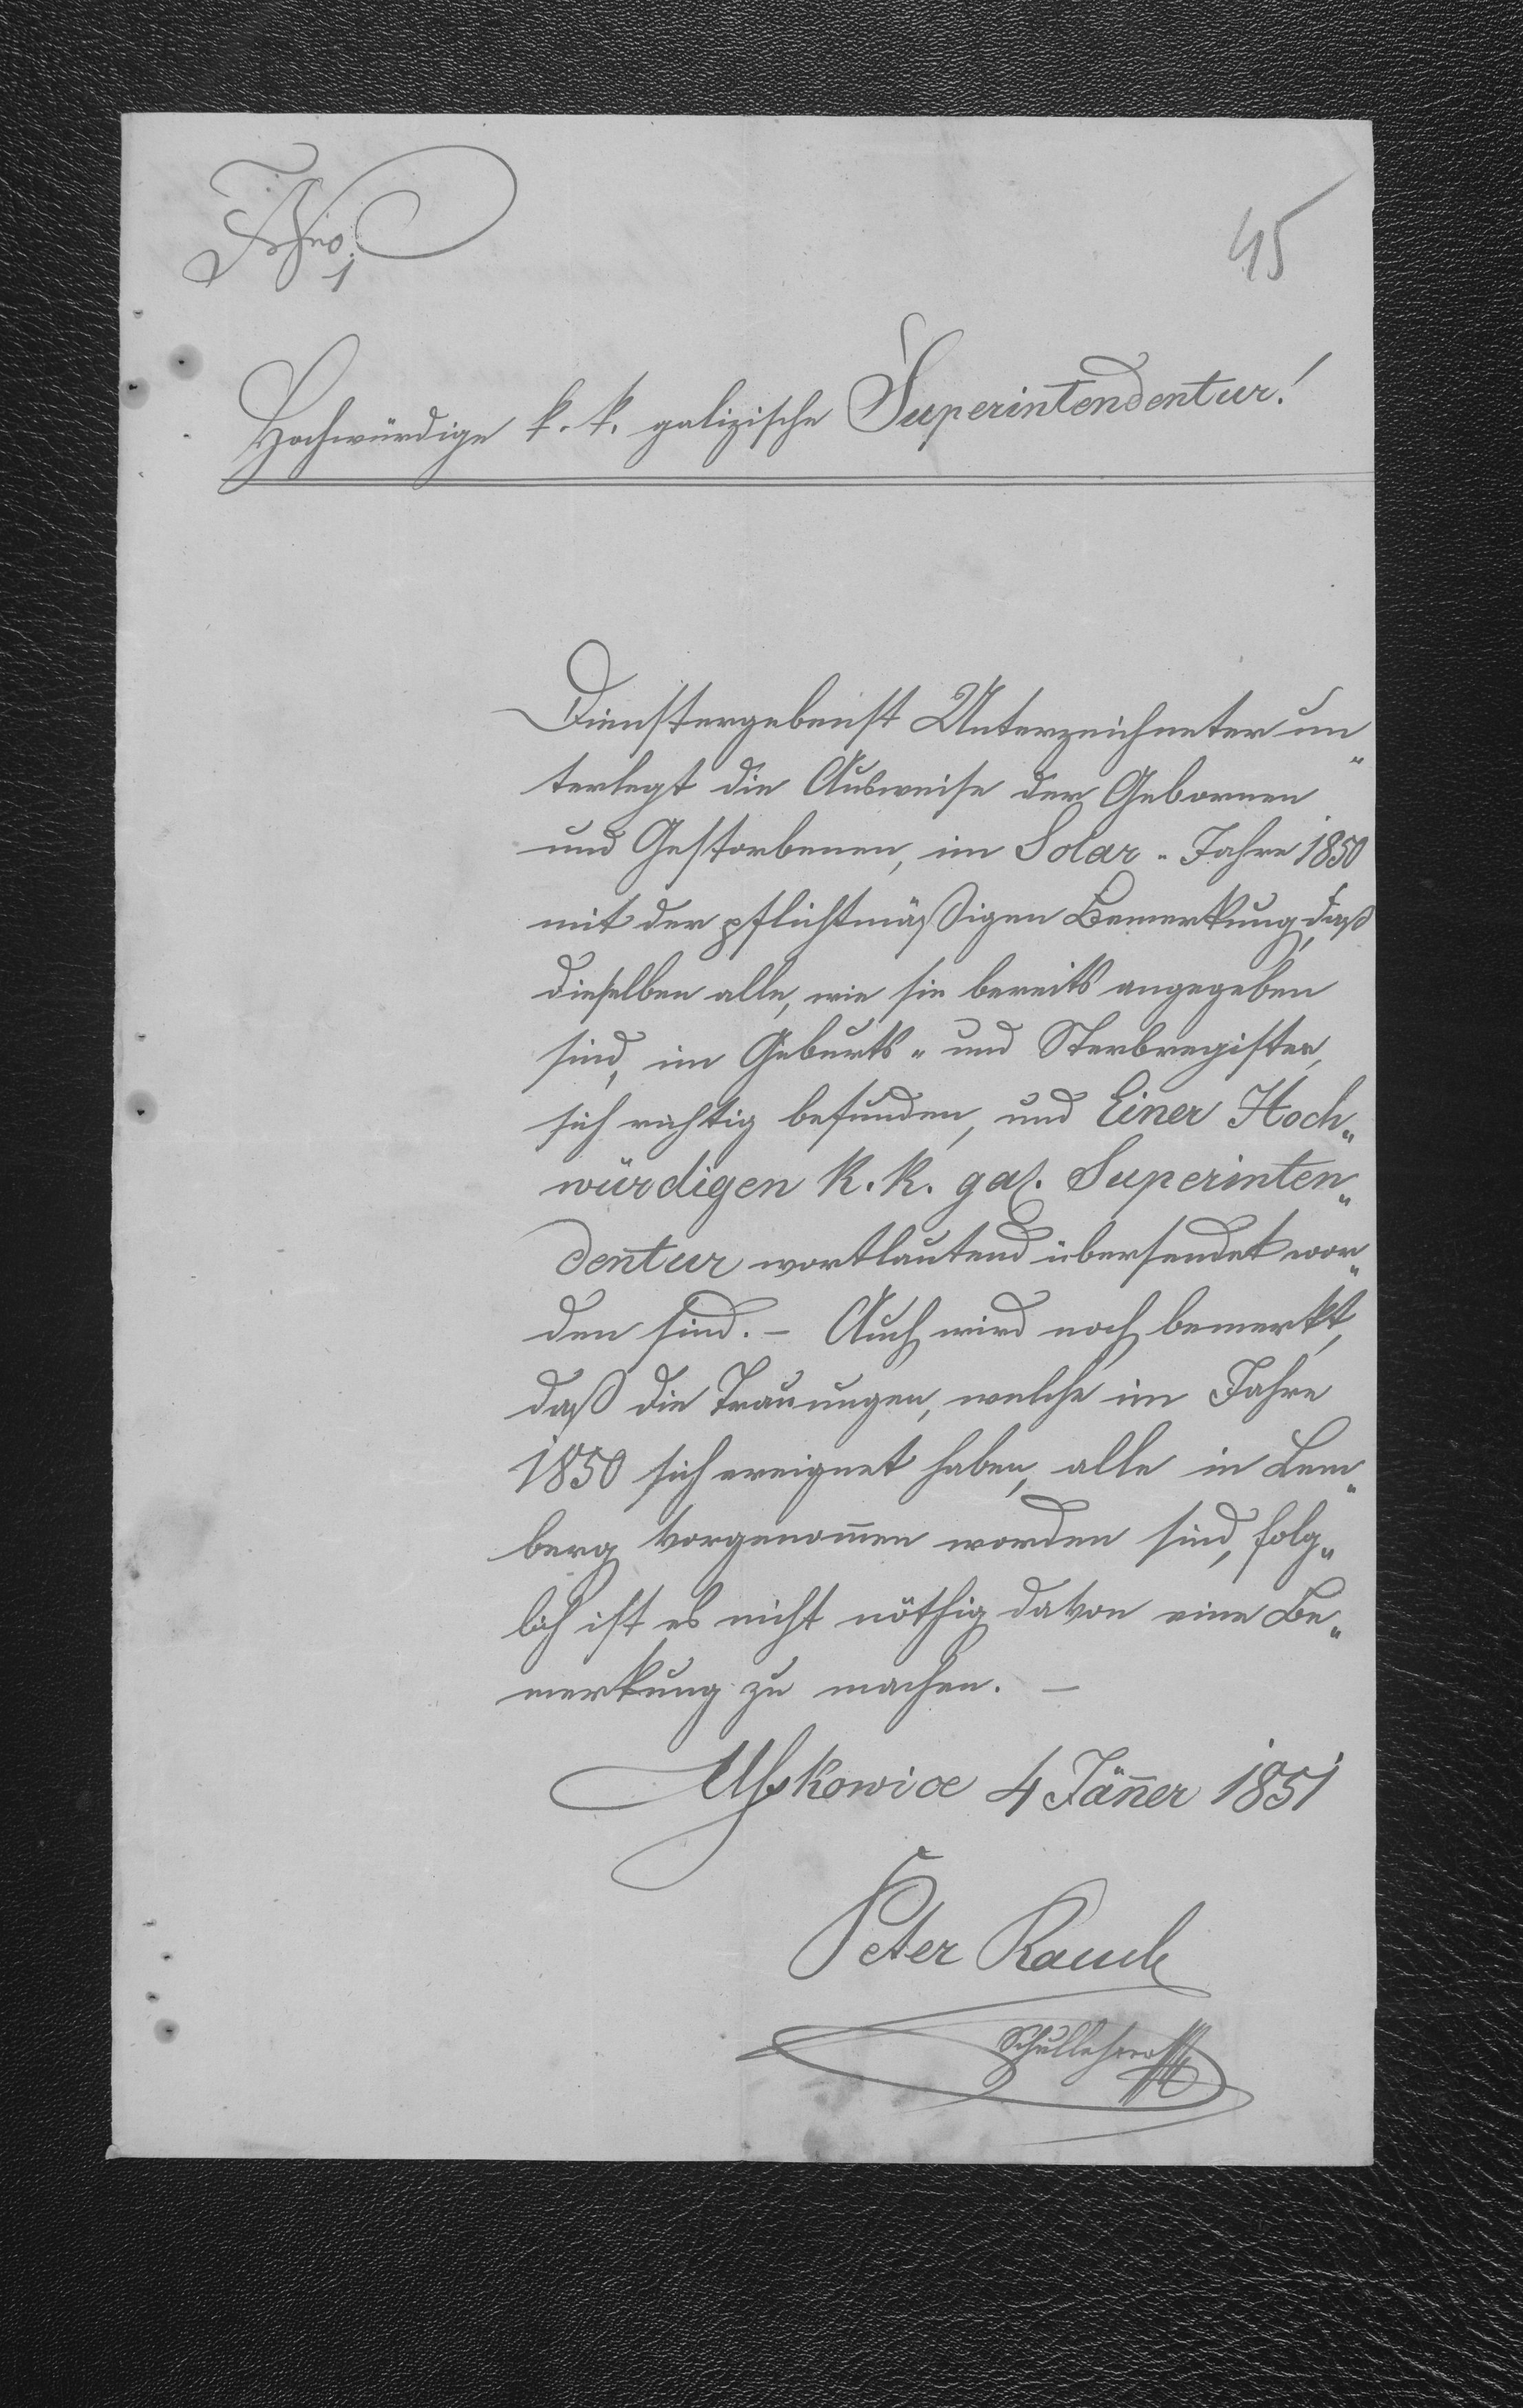 No. 1
45
Hochwürdige k. k. galizische Superintendentur!
Dienstergebenst Unterzeichneter un„
terlegt die Ausweise der Gebornen
und Gestorbenen, im Solar-Jahre 1850
mit der pflichtmäßigen Bemerkung, daß
dieselben alle, wie sie bereits angegeben
sind, im Geburts- und Sterbregister,
sich richtig befunden, und Einer Hoch„
würdigen k. k. gal. Superinten„
dentur wortlautend übersendet wor„
den sind. – Auch wird noch bemerkt,
daß die Trauungen, welche im Jahre
1850 sich ereignet haben, alle in Lem„
berg vorgenom̅en worden sind, folg„
lich ist es nicht nöthig davon eine Be„
merkung zu machen. –
4 Jän̅er 1851
Peter Rauch
Schullehrer